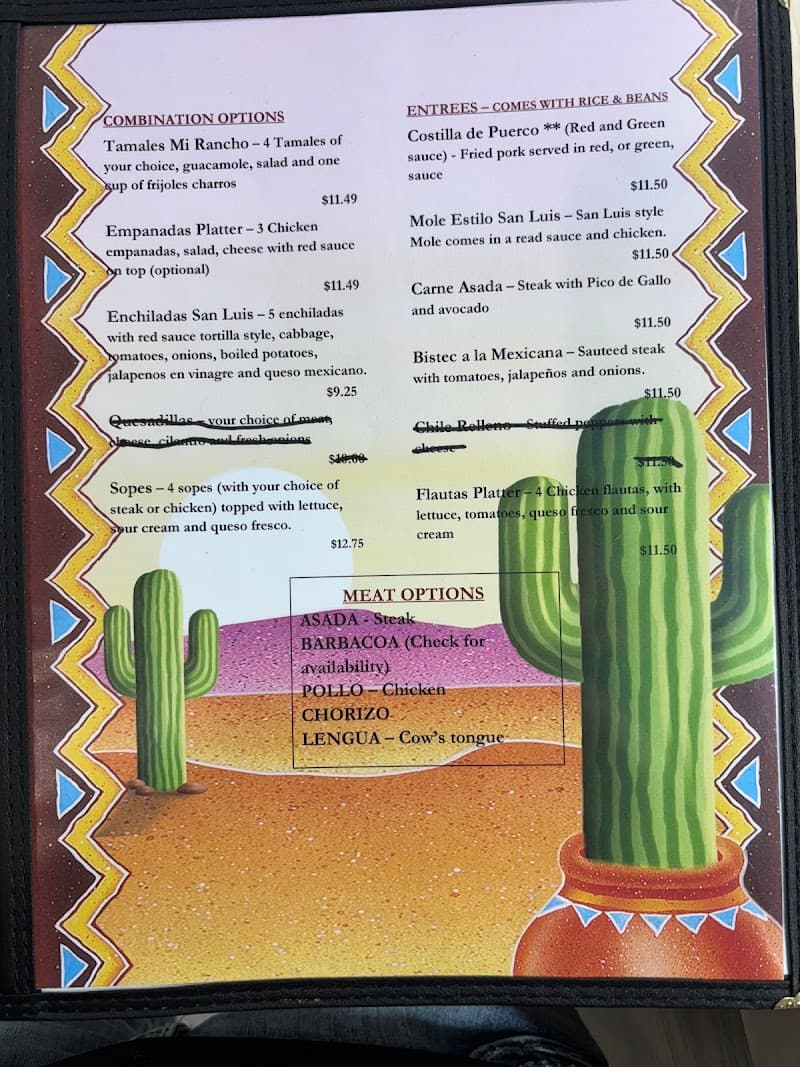 COMBINATION OPTIONS
Tamales Mi Rancho – 4 Tamales of
your choice, guacamole, salad and one
cup of frijoles charros
$11.49
Empanadas Platter – 3 Chicken
empanadas, salad, cheese with red sauce
on top (optional)
$11.49
Enchiladas San Luis – 5 enchiladas
with red sauce tortilla style, cabbage,
tomatoes, onions, boiled potatoes,
jalapenos en vinagre and queso mexicano.
$9.25
Quesadillas – your choice of meat,
cheese, cilantro and fresh onions
$10.00
Sopes – 4 sopes (with your choice of
steak or chicken) topped with lettuce,
sour cream and queso fresco.
$12.75
ENTREES – COMES WITH RICE & BEANS
Costilla de Puerco ** (Red and Green
sauce) - Fried pork served in red, or green,
sauce
$11.50
Mole Estilo San Luis – San Luis style
Mole comes in a read sauce and chicken.
$11.50
Carne Asada – Steak with Pico de Gallo
and avocado
$11.50
Bistec a la Mexicana – Sauteed steak
with tomatoes, jalapeños and onions.
$11.50
Chile Relleno – Stuffed peppers with
cheese
$11.50
Flautas Platter – 4 Chicken flautas, with
lettuce, tomatoes, queso fresco and sour
cream
$11.50
MEAT OPTIONS
ASADA - Steak
BARBACOA (Check for
availability)
POLLO – Chicken
CHORIZO
LENGUA – Cow's tongue